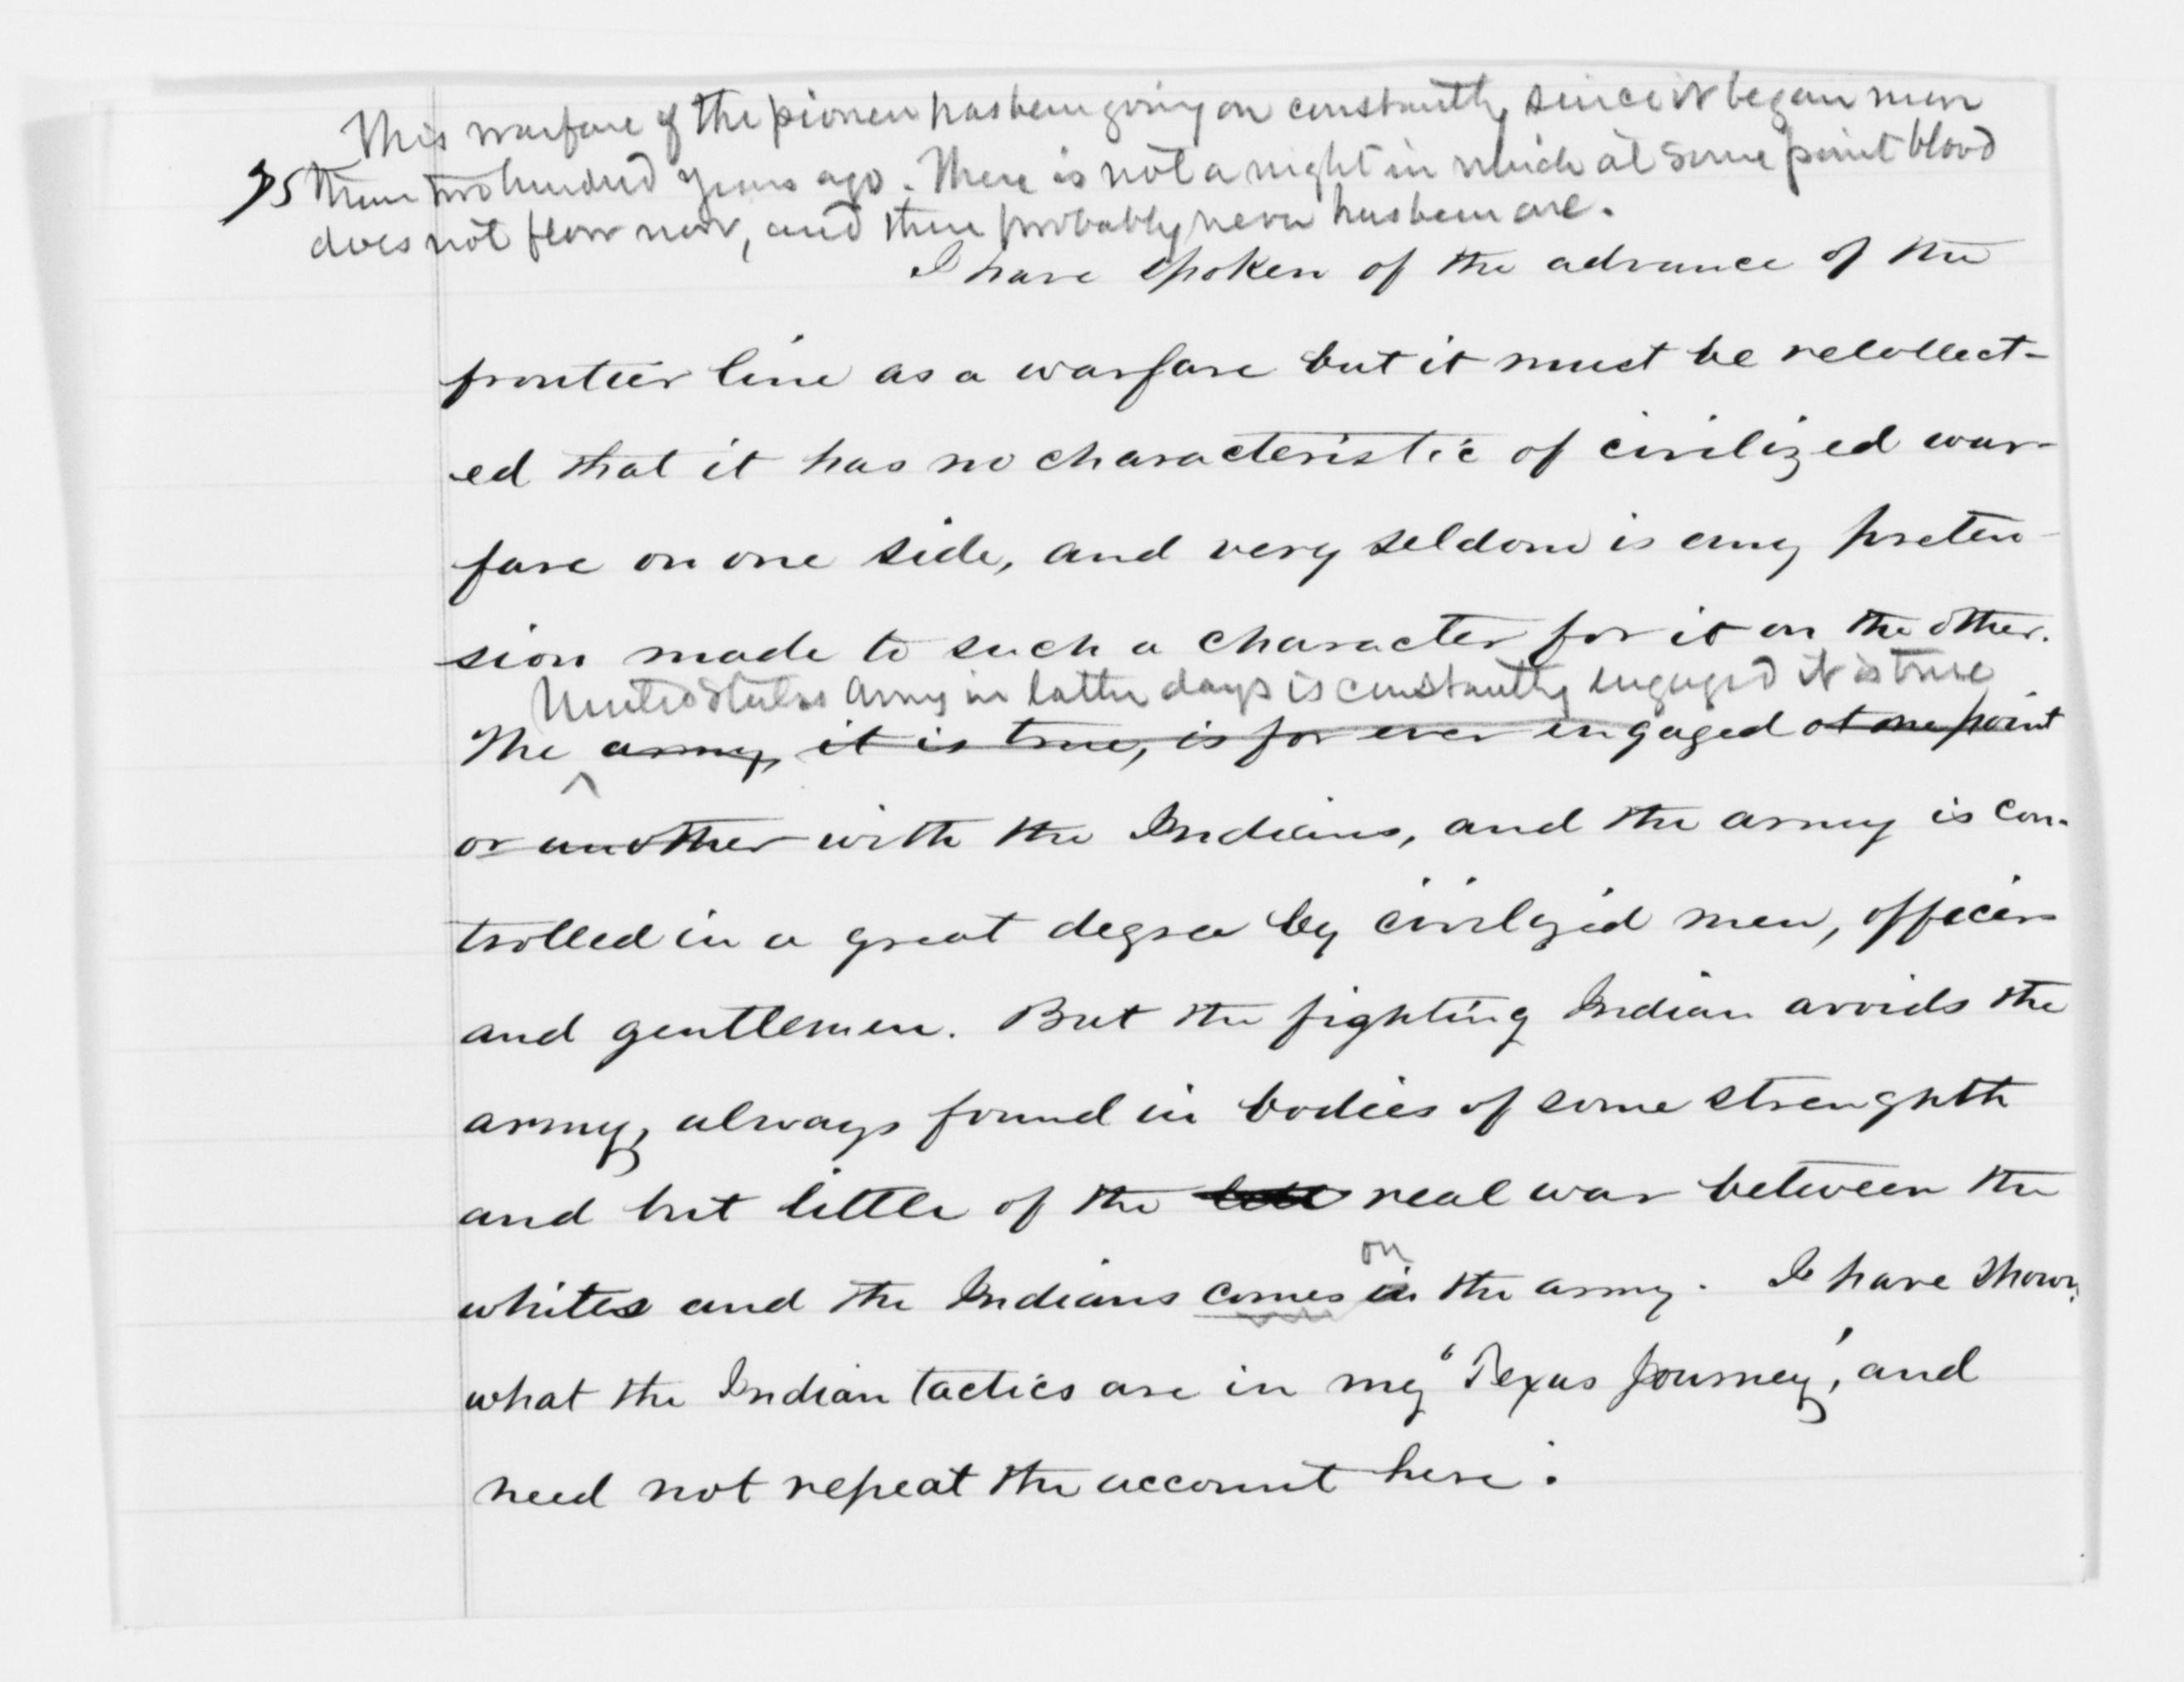 This warfare of the pioneer has been going on constantly since it began more
than two hundred years ago. There is not a night in which at some point blood
does not flow now, and there probably never has been one.
I have spoken of the advance of the
frontier line as a warfare but it must be recollect-
ed that it has no characteristic of civilized war-
fare on one side, and very seldom is any preten-
sion made to such a character for it on the other.
United States Army in latter days is constantly engaged it is true
The army, it is true, is for ever engaged at one point
or another with the Indians, and the army is con-
trolled in a great degree by civilized men, officers
and gentlemen. But the fighting Indian avoids the
army, always found in bodies of some strenghth
and but little of the real war between the
on
whites and the Indians comes in the army. I have shown
what the Indian tactics are in my "Texas Journey," and
need not repeat the account here.